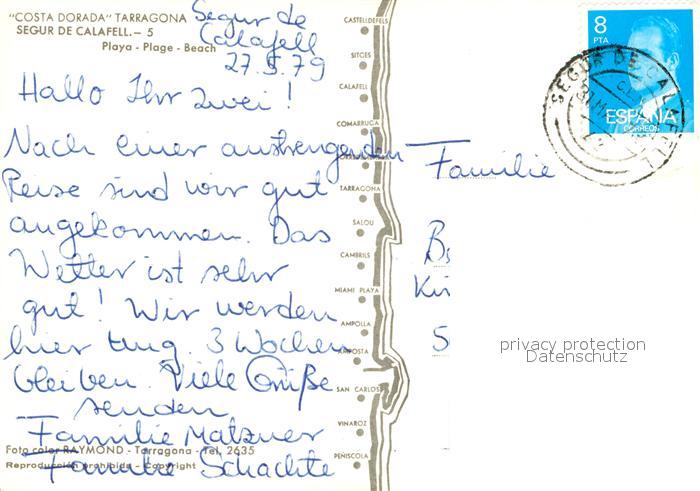 "COSTA DORADA" TARRAGONA
SEGUR DE CALAFELL. – 5
Playa - Plage - Beach
Segur de
Calafell
27.5.79
Hallo Ihr zwei!
Nach einer anstrengenden
Reise sind wir gut
angekommen. Das
Wetter ist sehr
gut! Wir werden
hier 3 Wochen
bleiben. Viele Grüße
senden
Familie Matzner
Familie Schachte
Foto color RAYMOND - Tarragona - Tel. 2635
Reproducción prohibida - Copyright
CASTELLDEFELS
SITGES
CALAFELL
COMARRUGA
TARRAGONA
SALOU
CAMBRILS
MIAMI PLAYA
AMPOLLA
AMPOSTA
SAN CARLOS
VINAROZ
PEÑISCOLA
8
PTA
ESPAÑA
CORREOS
SEGUR DE CALAFELL
Familie
privacy protection
Datenschutz